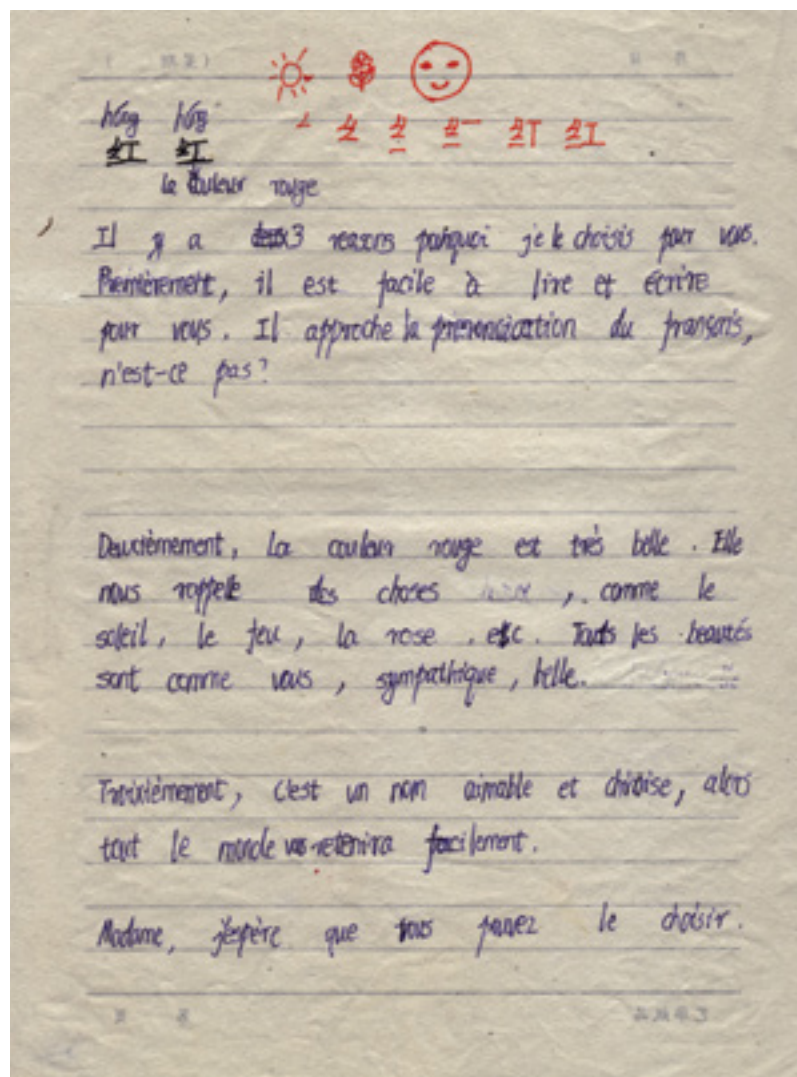 hóng hóng
红 红
la couleur rouge
Il y a 3 reasons pourquoi je le choisis pour vous.
Premièrement, il est facile à lire et écrire
pour vous. Il approche la prenonciation du français,
n'est-ce pas?
Deuxièmement, la couleur rouge est très belle. Elle
nous rappelle des choses, comme le
soleil, le feu, la rose, etc. Touts les beautés
sont comme vous, sympathique, belle.
Troixièmement, c'est un nom aimable et chinoise, alors
tout le monde vous retenira facilement.
Madame, j'espère que vous pouvez le choisir.